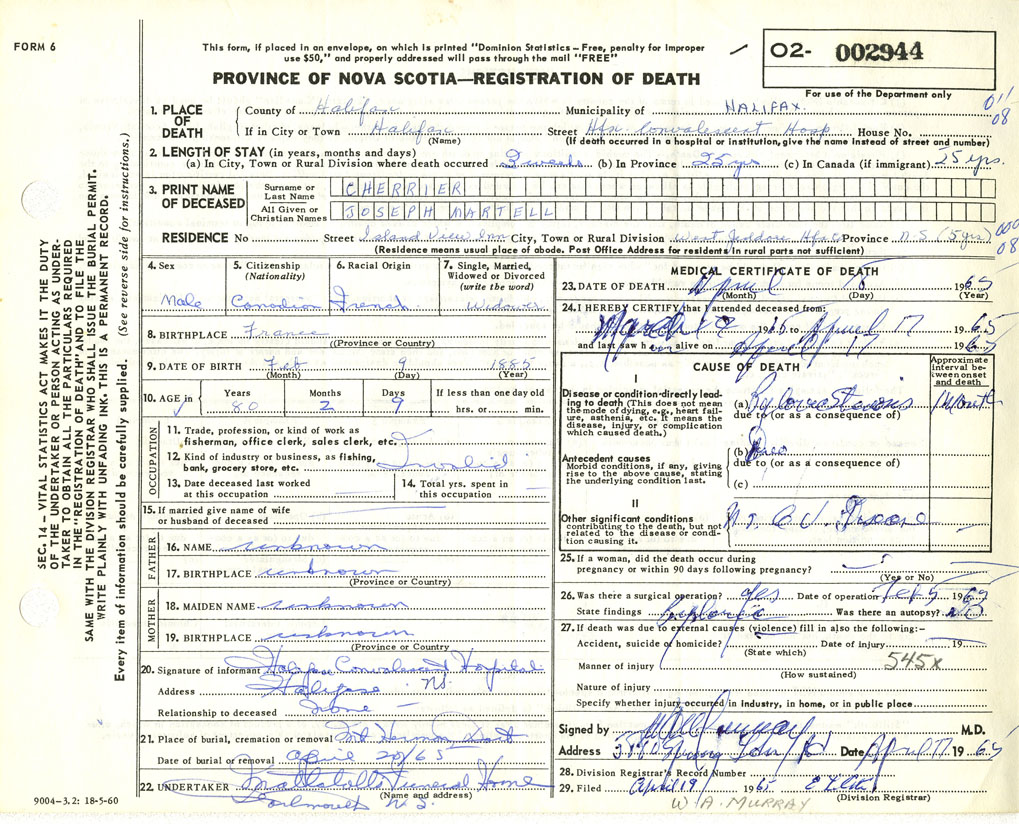 FORM 6
This form, if placed in an envelope, on which is printed "Dominion Statistics – Free, penalty for improper
use $50," and properly addressed will pass through the mail "FREE"
O2- 002944
PROVINCE OF NOVA SCOTIA—REGISTRATION OF DEATH
For use of the Department only
011
08
1. PLACE OF DEATH
County of Halifax Municipality of HALIFAX.
If in City or Town Halifax Street Hfx. Convalescent Hosp House No.
(Name) (If death occurred in a hospital or institution, give the name instead of street and number)
2. LENGTH OF STAY (in years, months and days)
(a) In City, Town or Rural Division where death occurred 3 weeks (b) In Province 25 yrs (c) In Canada (if immigrant) 25 yrs.
3. PRINT NAME OF DECEASED
Surname or Last Name CHERRIER
All Given or Christian Names JOSEPH MARTELL
RESIDENCE No Street Island View Inn City, Town or Rural Division West Jeddore Hfx Co Province N-S (5 yrs)
000
08
(Residence means usual place of abode. Post Office Address for residents in rural parts not sufficient)
4. Sex
Male
5. Citizenship
(Nationality)
Canadian
6. Racial Origin
French
7. Single, Married,
Widowed or Divorced
(write the word)
Widower
8. BIRTHPLACE France
((Province or Country)
9. DATE OF BIRTH Feb 9 1885
(Month) (Day) (Year)
10. AGE in
Years Months Days If less than one day old
80 2 9 hrs. or min.
OCCUPATION
11. Trade, profession, or kind of work as
fisherman, office clerk, sales clerk, etc.
12. Kind of industry or business, as fishing,
bank, grocery store, etc. Invalid
13. Date deceased last worked
at this occupation
14. Total yrs. spent in
this occupation
15. If married give name of wife
or husband of deceased
FATHER
16. NAME unknown
17. BIRTHPLACE unknown
(Province or Country)
MOTHER
18. MAIDEN NAME unknown
19. BIRTHPLACE unknown
(Province or Country)
20. Signature of informant Halifax Convalescent Hospital
Address Halifax NS.
Relationship to deceased None
21. Place of burial, cremation or removal Mt Hermon Dart
Date of burial or removal April 20/65
22. UNDERTAKER Mattatall Funeral Home
(Name and address)
Dartmouth N.S.
9004-3.2: 18-5-60
MEDICAL CERTIFICATE OF DEATH
23. DATE OF DEATH April 18 1965
(Month) (Day) (Year)
24. I HEREBY CERTIFY that I attended deceased from:
March 1965 to April 17 1965
and last saw him alive on April 17 1965
CAUSE OF DEATH
Approximate
interval between
onset
and death
I
Disease or condition directly leading
to death (This does not mean
the mode of dying, e.g., heart failure,
asthenia, etc. It means the
disease, injury, or complication
which caused death.)
(a) Pyloric Stenosis 1 Month
due to (or as a consequence of)
Antecedent causes
Morbid conditions, if any, giving
rise to the above cause, stating
the underlying condition last.
(b)
due to (or as a consequence of)
(c)
II
Other significant conditions
contributing to the death, but not
related to the disease or condition
causing it.
25. If a woman, did the death occur during
pregnancy or within 90 days following pregnancy?
(Yes or No)
26. Was there a surgical operation? yes Date of operation 1965
State findings Was there an autopsy? no
27. If death was due to external causes (violence) fill in also the following:—
Accident, suicide or homicide? Date of injury 19
(State which)
Manner of injury 545x
(How sustained)
Nature of injury
Specify whether injury occurred in industry, in home, or in public place
Signed by M.D.
Address Young Date April 17 1965
28. Division Registrar's Record Number
29. Filed April 19 1965
(Division Registrar)
W. A. MURRAY
SEC. 14 – VITAL STATISTICS ACT MAKES IT THE DUTY
OF THE UNDERTAKER OR PERSON ACTING AS UNDERTAKER
TO OBTAIN ALL THE PARTICULARS REQUIRED
IN THE "REGISTRATION OF DEATH" AND TO FILE THE
SAME WITH THE DIVISION REGISTRAR WHO SHALL ISSUE THE BURIAL PERMIT.
WRITE PLAINLY WITH UNFADING INK. THIS IS A PERMANENT RECORD.
Every item of information should be carefully supplied. (See reverse side for instructions.)